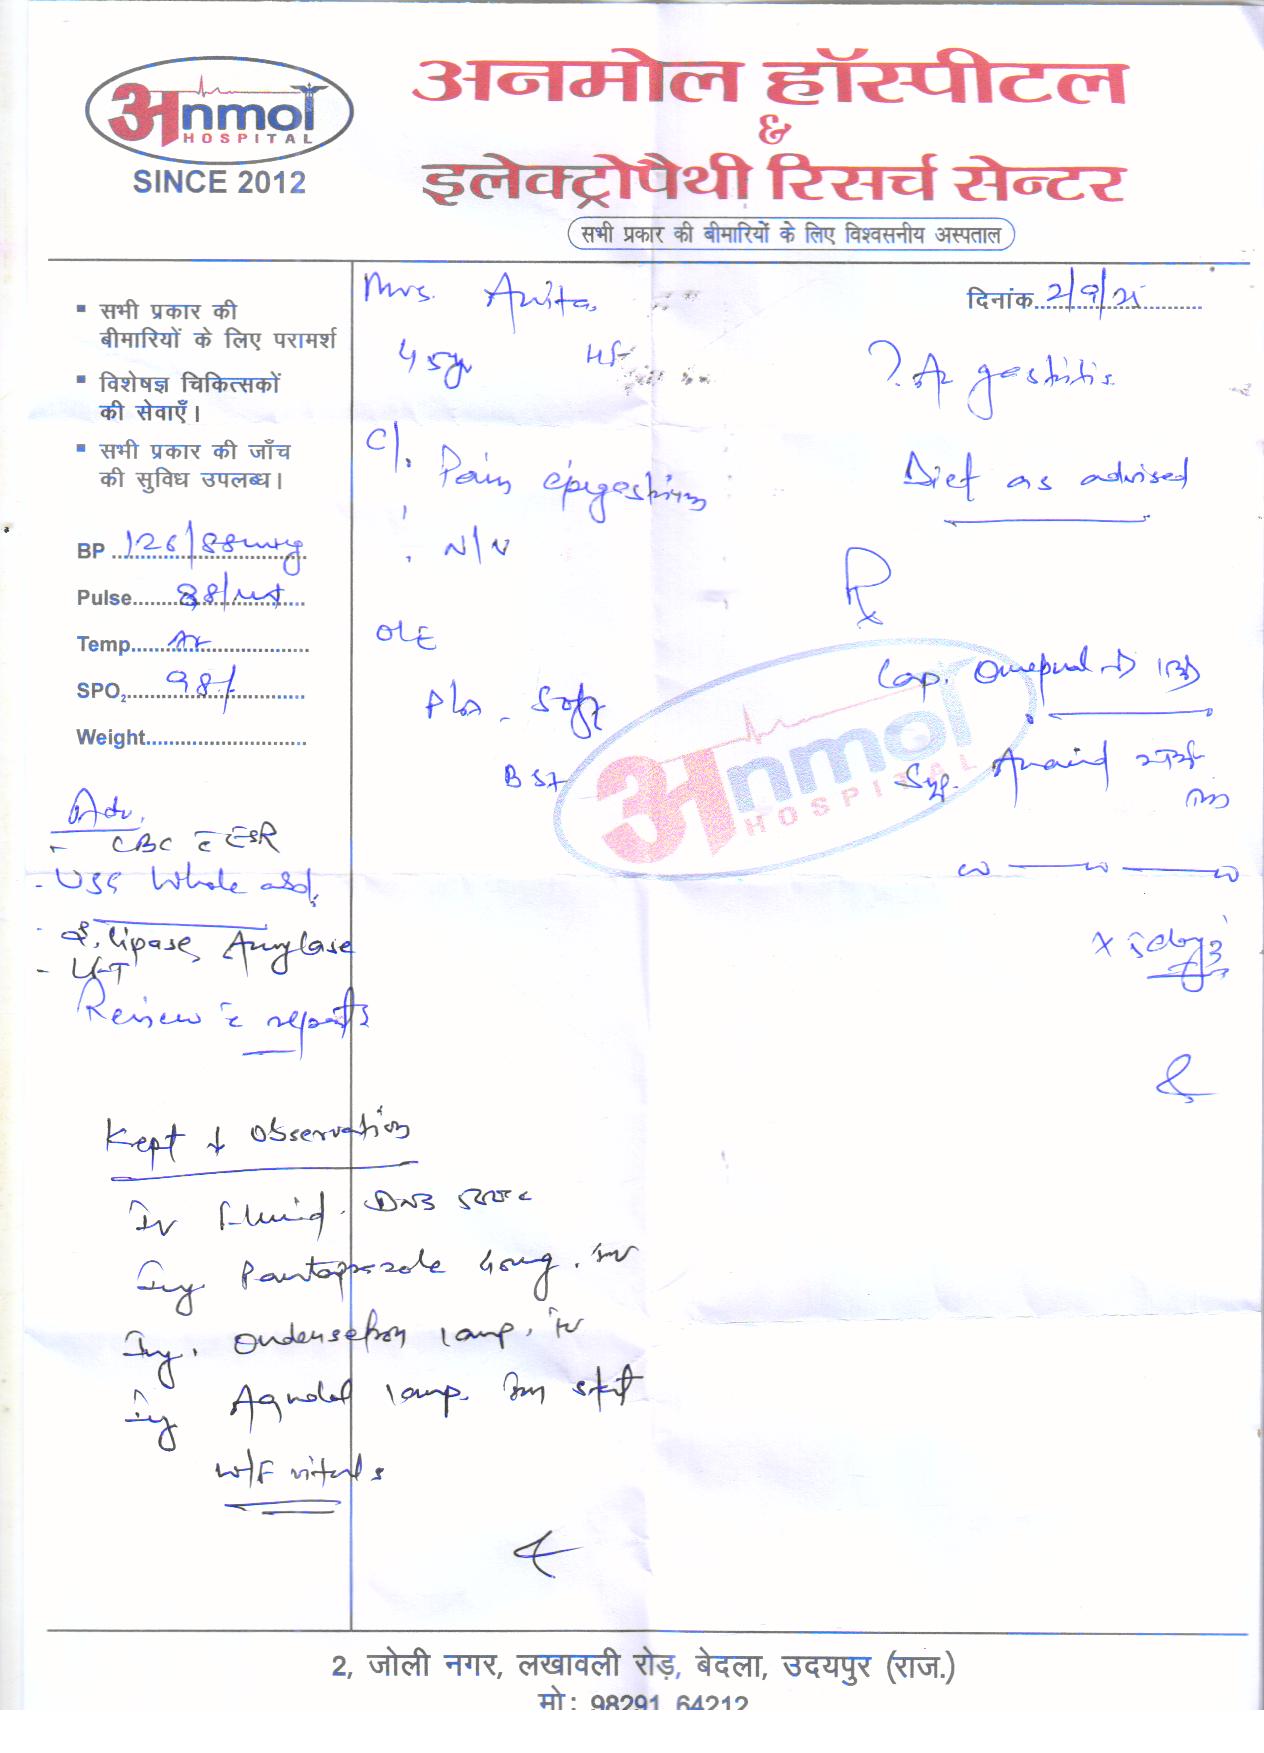 अnmol
HOSPITAL
SINCE 2012
अनमोल हॉस्पीटल
&
इलेक्ट्रोपैथी रिसर्च सेन्टर
सभी प्रकार की बीमारियों के लिए विश्वसनीय अस्पताल
▪ सभी प्रकार की
बीमारियों के लिए परामर्श
▪ विशेषज्ञ चिकित्सकों
की सेवाएँ।
▪ सभी प्रकार की जाँच
की सुविध उपलब्ध।
BP 126/88mmhg
Pulse 88/mt
Temp
SPO₂ 98%
Weight
Adv.
- CBC c̄ ESR
- USG Whole abd.
- S. lipase, Amylase
- LFT
Review c̄ reports
Mrs. Anita
45yr
दिनांक 2/9/25
C/o Pain epigastrium
. N/V
O/E
P/A - Soft
BS+
? Ac gastritis
Diet as advised
Rx
Cap. Omeprazol-D 1BD
Syp.
x 5days
अnmol
HOSPITAL
Kept ↓ observation
IV fluid. DNS 500cc
Inj. Pantoprazole 40mg. IV
Inj. Ondensetron 1amp. IV
Inj 1amp. Im stat
W/F vitals
2, जोली नगर, लखावली रोड़, बेदला, उदयपुर (राज.)
मो: 98291 64212